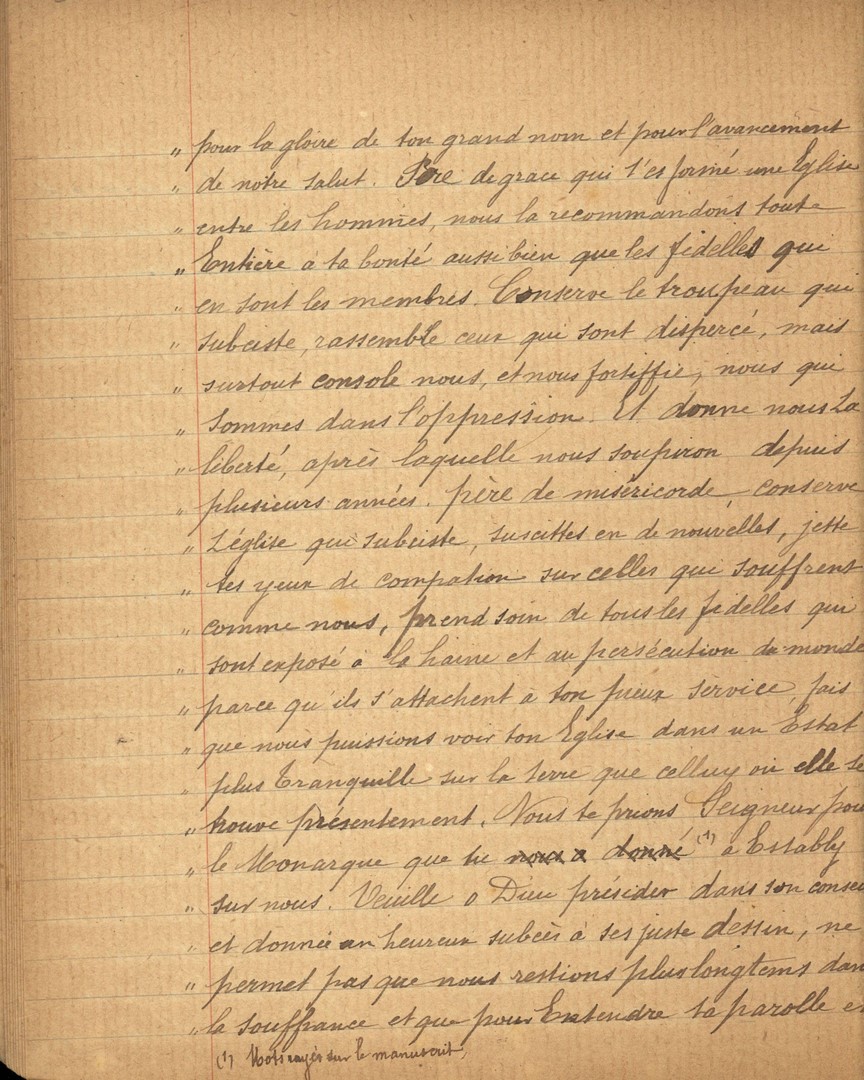 „ pour la gloire de ton grand nom et pour l'avancement
„ de notre salut. Père de grace qui t'es formé une Eglise
„ entre les hommes, nous la recommandons toute
„ Entière a ta bonté aussi bien que les fidelles qui
„ en sont les membres. Conserve le troupeau qui
„ subciste, rassemble ceux qui sont dispercé, mais
„ surtout console nous, et nous fortiffie, nous qui
„ sommes dans l'oppression. Et donne nous La
„ liberté, après laquelle nous soupiron depuis
„ plusieurs années. père de miséricorde, conserve
„ L'église qui subciste, suscittes en de nouvelles, jette
„ tes yeux de compation sur celles qui souffrent
„ comme nous, prend soin de tous les fidelles qui
„ sont exposé à la haine et au persécution du monde
„ parce qu'ils s'attachent a ton pieux service, fais
„ que nous puissions voir ton Eglise dans un Estat
„ plus tranquille sur la terre que celluy où elle se
„ trouve présentement. Nous te prions Seigneur pou
„ le Monarque que tu nous a donné (1) a Estably
„ sur nous. Veuille o Dieu présider dans son consei
„ et donnée un heureux subcès à ses juste dessin, ne
„ permet pas que nous restions plus longtems dan
„ la souffrance et que pour Entendre ta parolle e
(1) Mots rayés sur le manuscrit,